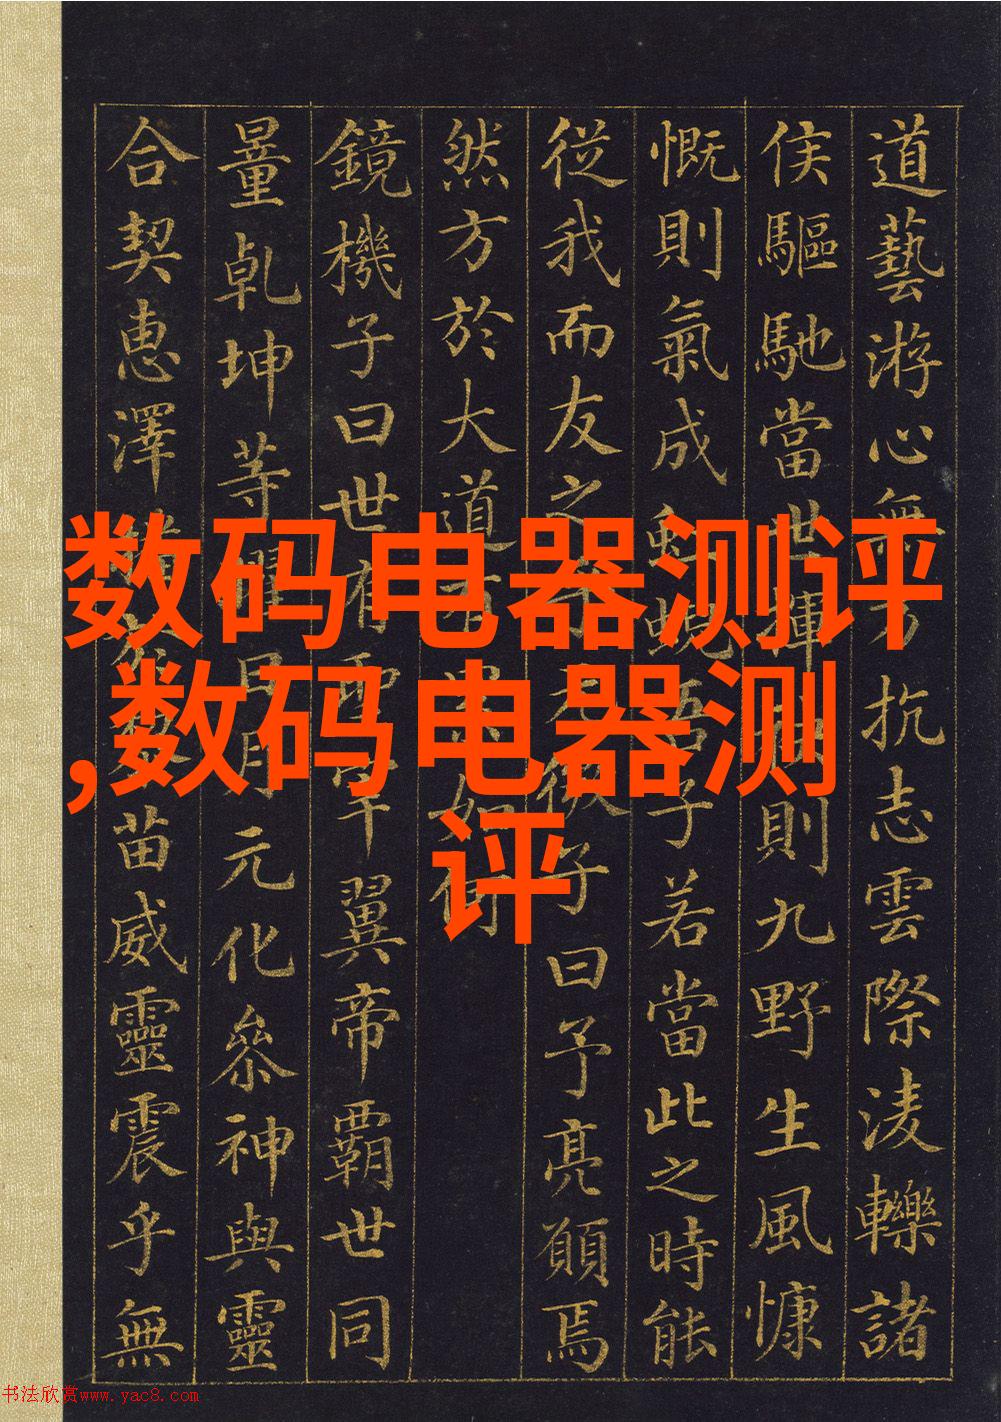 数码电器测评
,数码电器测
评
道藝游心無方抗志雲際淩轢諸
侯驅馳當世揮則九野生風慷
慨則氣成虹蜺吾子若當此之時能
從我而友之微子曰予亮願焉
然方於大道有累如何
鏡機子曰世有宰翼帝霸世同
量乾坤等曜日月元化叅神與靈
合契惠澤苗威靈震乎無
书法欣赏www.yac8.com